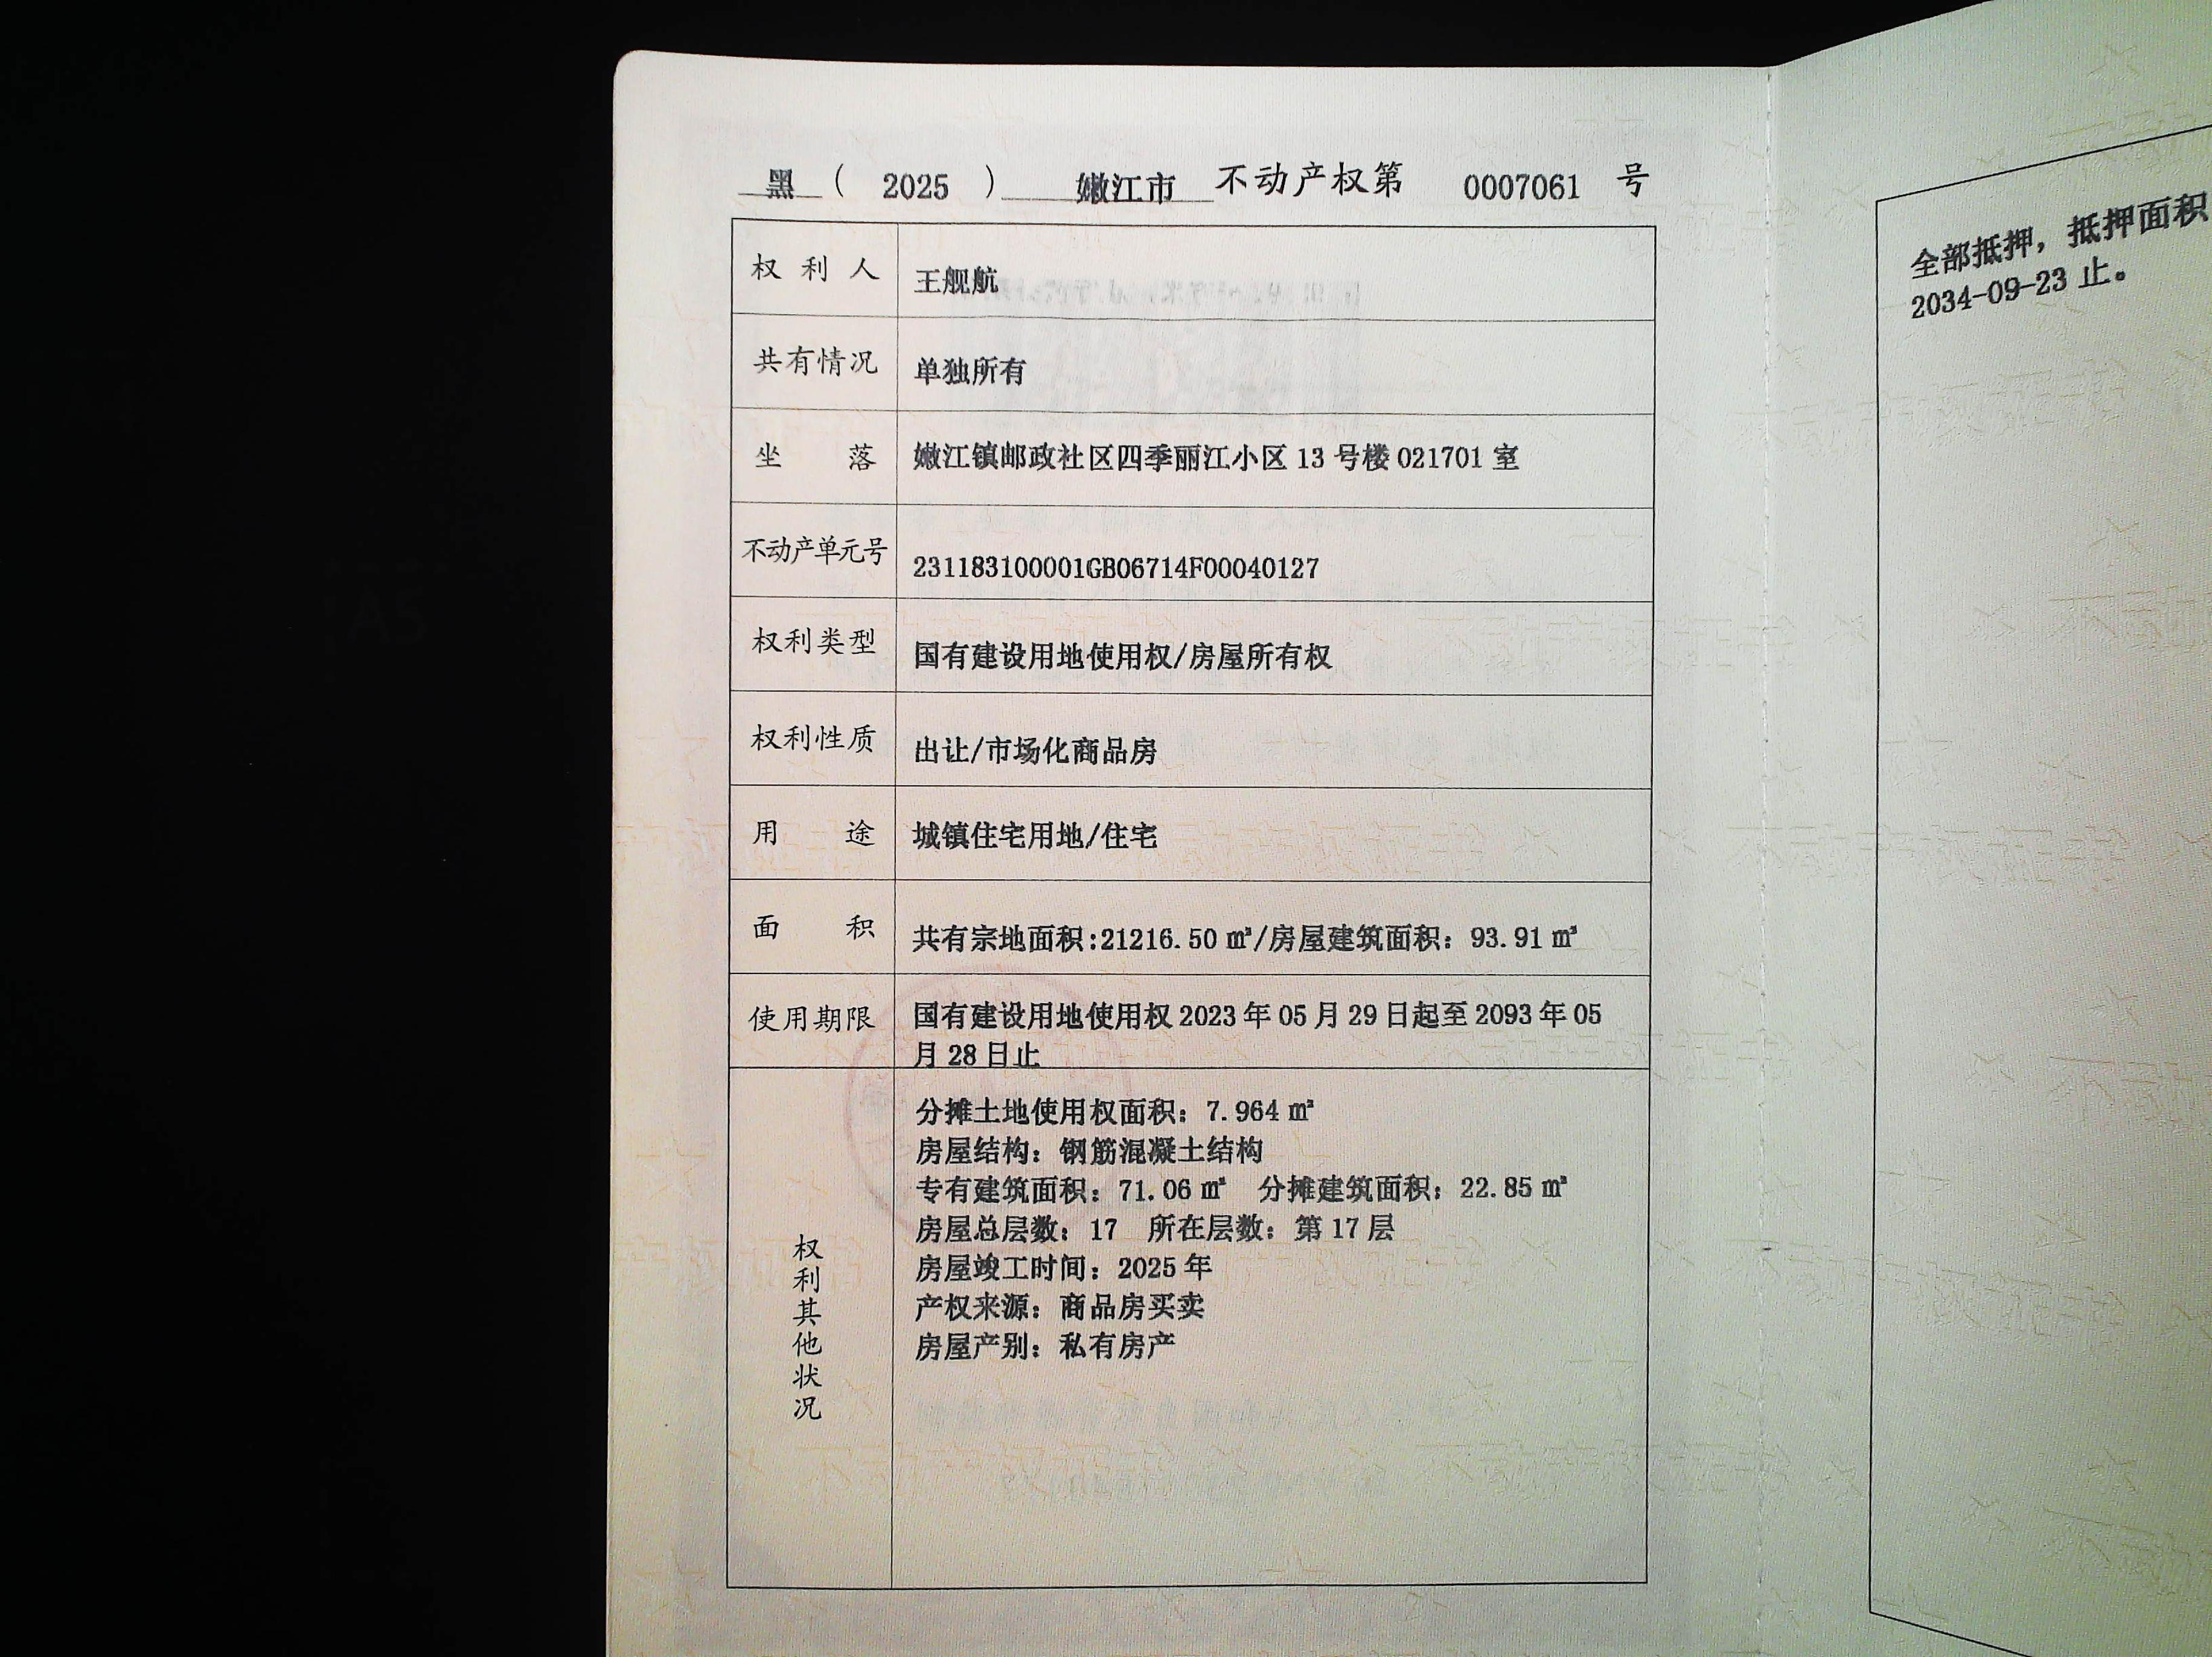 黑 ( 2025 ) 嫩江市 不动产权第 0007061 号
权利人 王舰航
共有情况 单独所有
坐落 嫩江镇邮政社区四季丽江小区 13 号楼 021701 室
不动产单元号 231183100001GB06714F00040127
权利类型 国有建设用地使用权/房屋所有权
权利性质 出让/市场化商品房
用途 城镇住宅用地/住宅
面积 共有宗地面积:21216.50 ㎡/房屋建筑面积：93.91 ㎡
使用期限 国有建设用地使用权 2023 年 05 月 29 日起至 2093 年 05
月 28 日止
权利其他状况
分摊土地使用权面积：7.964 ㎡
房屋结构：钢筋混凝土结构
专有建筑面积：71.06 ㎡ 分摊建筑面积：22.85 ㎡
房屋总层数：17 所在层数：第 17 层
房屋竣工时间：2025 年
产权来源：商品房买卖
房屋产别：私有房产
全部抵押，抵押面积
2034-09-23 止。